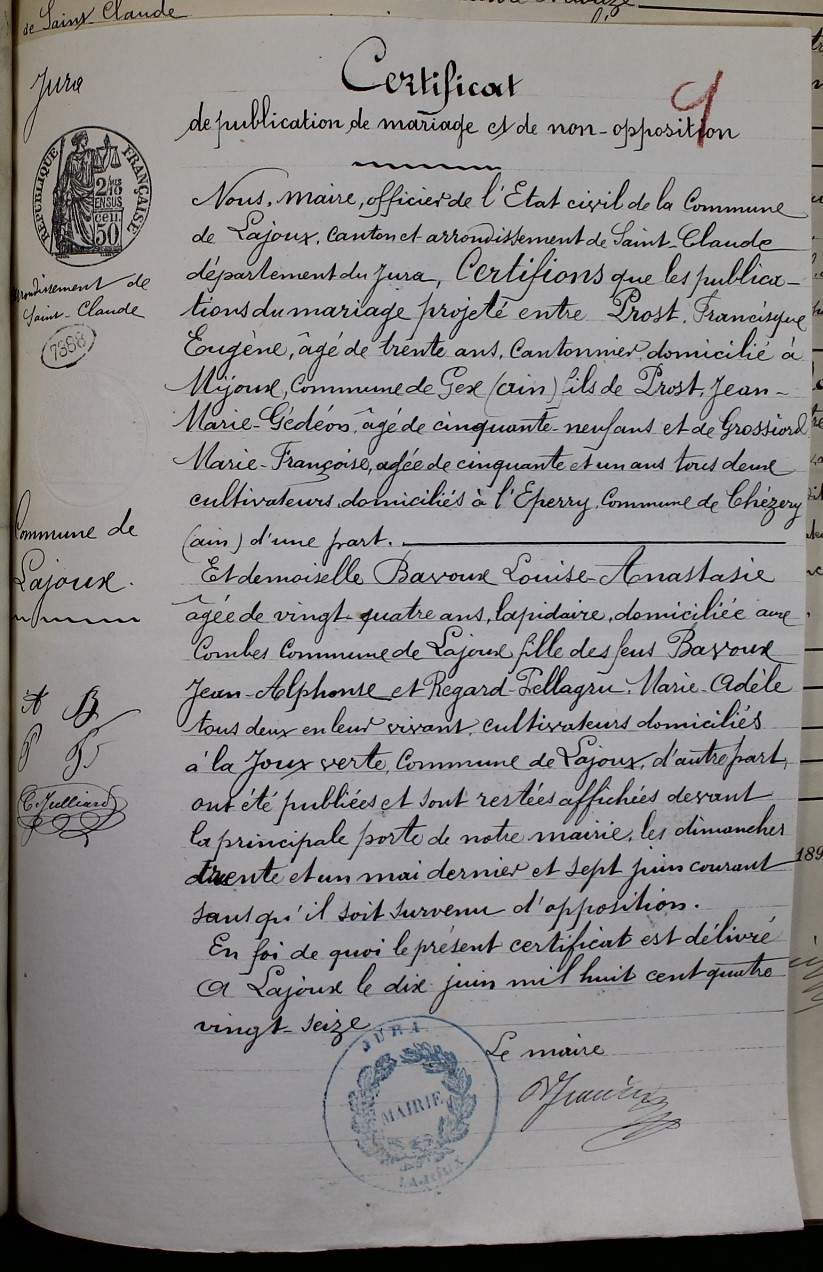 de Saint Claude
Jura
Certificat
9
de publication de mariage et de non-opposition
RÉPUBLIQUE FRANÇAISE
2/10es
EN SUS
50 cen.
Nous, maire, officier de l'Etat civil de la Commune
de Lajoux, Canton et arrondissement de Saint-Claude
département du Jura, Certifions que les publica-
tions du mariage projeté entre Prost, Francisque
Eugène, âgé de trente ans, Cantonnier domicilié à
Mijoux, Commune de Gex (ain) fils de Prost, Jean-
Marie-Gédéon, âgé de cinquante-neuf ans et de Grossiord
Marie-Françoise, agée de cinquante et un ans tous deux
cultivateurs domiciliés à l'Eperry, Commune de Chézery
(ain) d'une part.
arrondissement de
Saint-Claude
7388
Commune de
Lajoux.
Et demoiselle Bavoux Louise-Anastasie
âgée de vingt-quatre ans, lapidaire, domiciliée aux
Combes Commune de Lajoux fille des feus Bavoux
Jean-Alphonse et Regard-Pellagru, Marie-Adèle
tous deux en leur vivant, cultivateurs domiciliés
à la Joux verte, Commune de Lajoux, d'autre part,
ont été publiées et sont restées affichées devant
la principale porte de notre mairie, les dimanches
trente et un mai dernier et sept juin courant
sans qu'il soit survenu d'opposition.
En foi de quoi le présent certificat est délivré
A Lajoux le dix juin mil huit cent quatre
vingt-seize
A B
C. Julliard
189
Le maire
JURA
MAIRIE
LAJOUX